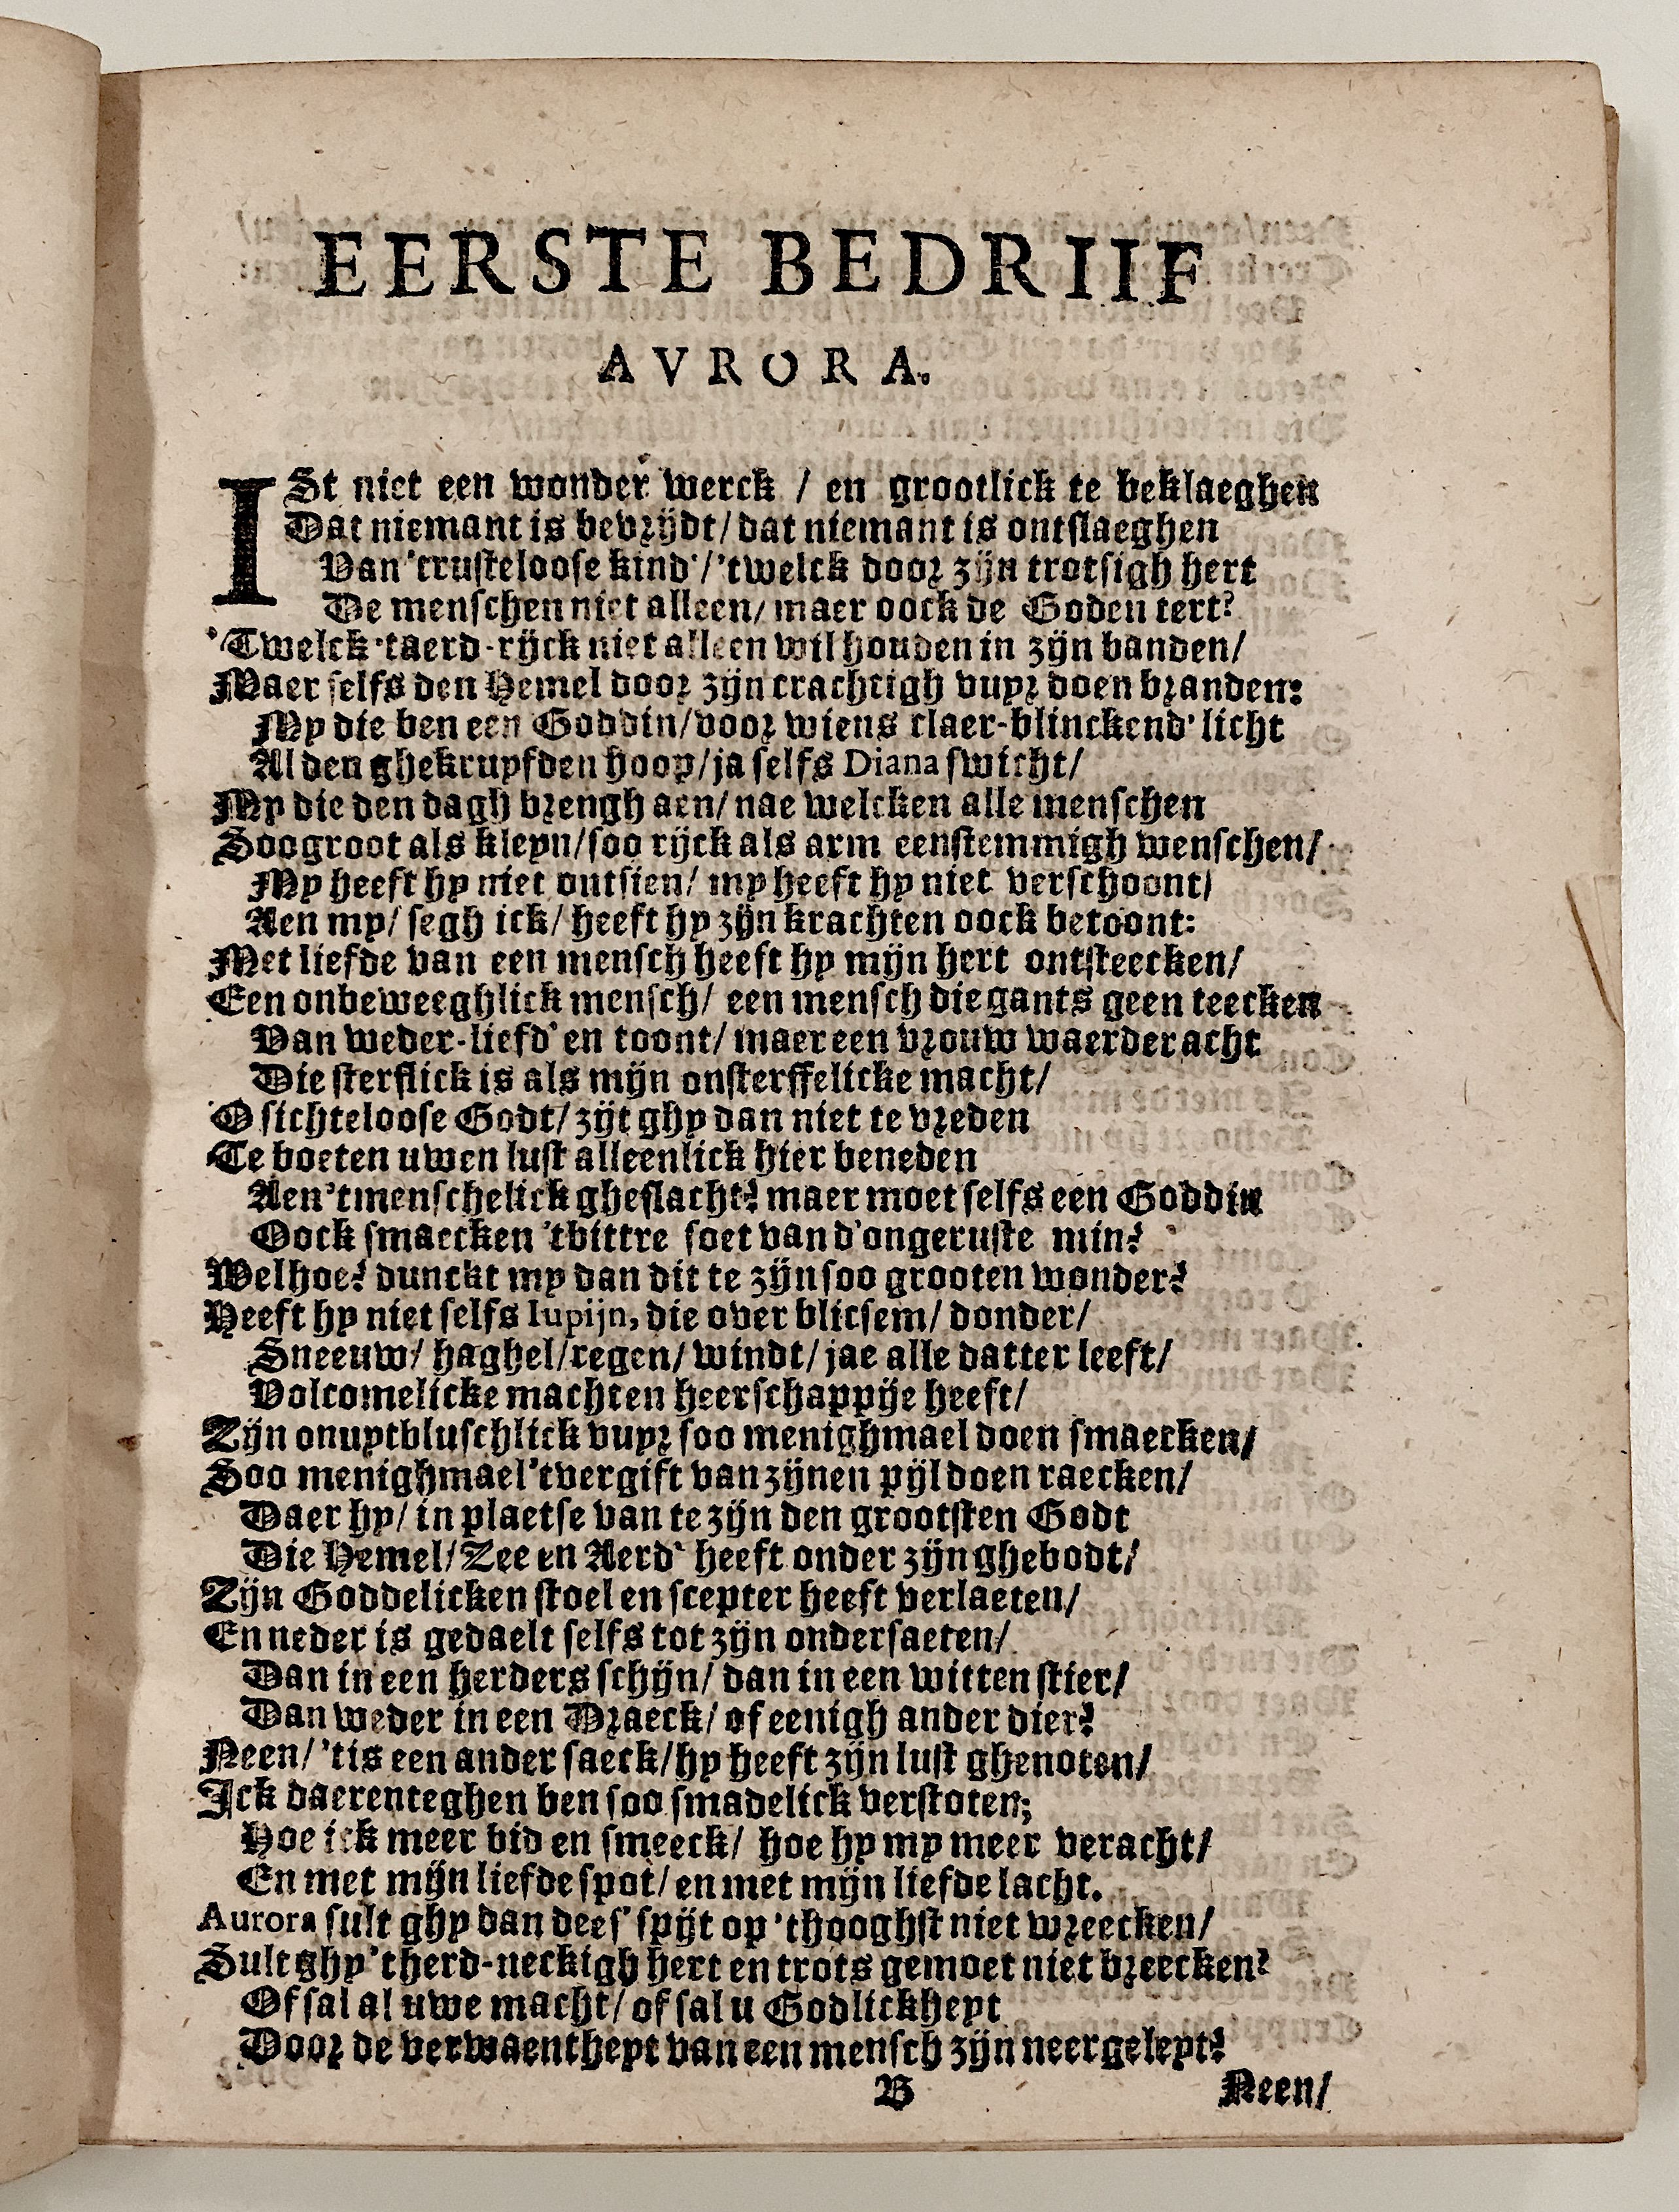 EERSTE BEDRIIF
AVRORA.
ISt niet een wonder werck / en grootlick te beklaeghen
Dat niemant is bevrijdt/ dat niemant is ontslaeghen
Van 'trusteloose kind'/ 'twelck door zijn trotsigh hert
De menschen niet alleen/ maer oock de Goden tert?
'Twelck 'taerd-rijck niet alleen wil houden in zijn banden/
Maer selfs den Hemel door zijn crachtigh vuyr doen branden:
My die ben een Goddin/ voor wiens claer-blinckend' licht
Al den ghekruyfden hoop/ ja selfs Diana swicht/
My die den dagh brengh aen/ nae welcken alle menschen
Soo groot als kleyn/ soo rijck als arm eenstemmigh wenschen/
My heeft hy niet ontsien/ my heeft hy niet verschoont/
Aen my/ segh ick/ heeft hy zijn krachten oock betoont:
Met liefde van een mensch heeft hy mijn hert ontsteecken/
Een onbeweeghlick mensch/ een mensch die gants geen teecken
Van weder-liefd' en toont/ maer een vrouw waerder acht
Die sterflick is als mijn onsterffelicke macht/
O sichteloose Godt/ zijt ghy dan niet te vreden
Te boeten uwen lust alleenlick hier beneden
Aen 'tmenschelick gheslacht? maer moet selfs een Goddin
Oock smaecken 'tbittre soet van d'ongeruste min?
Wel hoe? dunckt my dan dit te zijn soo grooten wonder?
Heeft hy niet selfs Iupijn, die over blicsem/ donder/
Sneeuw/ haghel/ regen/ windt/ jae alle datter leeft/
Volcomelicke machten heerschappije heeft/
Zijn onuytbluschlick vuyr soo menighmael doen smaecken/
Soo menighmael 'tvergift van zijnen pijl doen raecken/
Daer hy/ in plaetse van te zijn den grootsten Godt
Die Hemel/ Zee en Aerd' heeft onder zijn ghebodt/
Zijn Goddelicken stoel en scepter heeft verlaeten/
En neder is gedaelt selfs tot zijn ondersaeten/
Dan in een herders schijn/ dan in een witten stier/
Dan weder in een Draeck/ of eenigh ander dier?
Neen/ 'tis een ander saeck/ hy heeft zijn lust ghenoten/
Ick daerenteghen ben soo smadelick verstoten;
Hoe ick meer bid en smeeck/ hoe hy my meer veracht/
En met mijn liefde spot/ en met mijn liefde lacht.
Aurora sult ghy dan dees' spijt op 'thooghst niet wreecken/
Sult ghy 'therd-neckigh hert en trots gemoet niet breecken?
Of sal al uwe macht/ of sal u Godlickheyt
Door de verwaentheyt van een mensch zijn neer geleyt?
B
Neen/